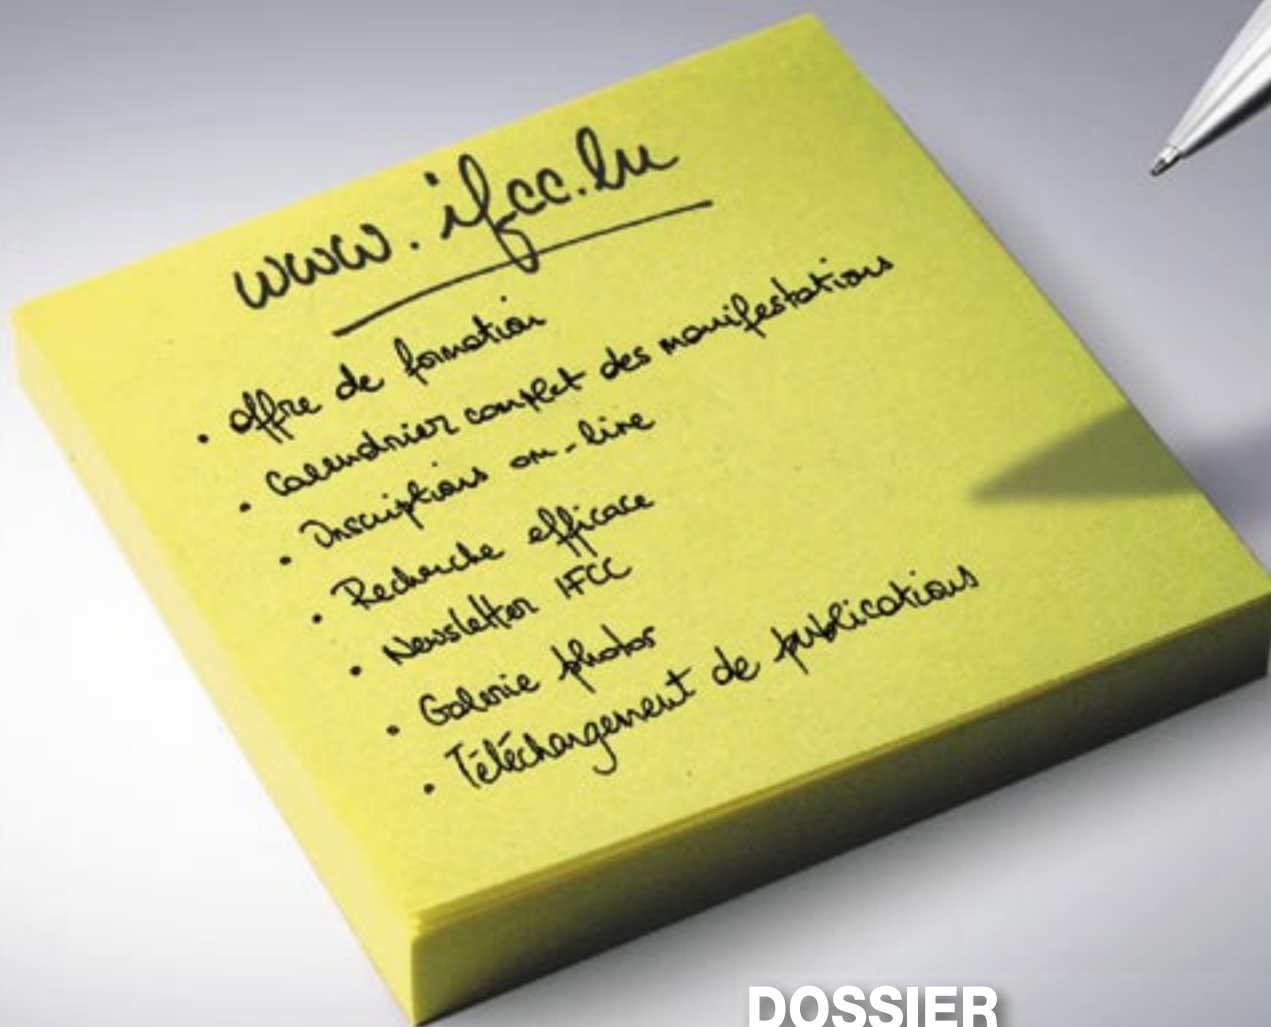 www.ifcc.lu
• offre de formation
• Calendrier complet des manifestations
• Inscriptions on-line
• Recherche efficace
• Newsletter IFCC
• Galerie photos
• Téléchargement de publications
DOSSIER